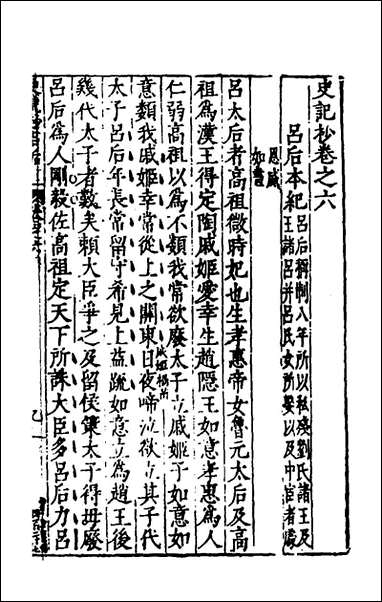 史記抄卷之六
呂后本紀
呂后稱制八年所以殺劉氏諸王及
王諸呂并呂氏女所娶以及中宦者
恩威
如畫
呂太后者高祖微時妃也生孝惠帝女魯元太后及高
祖為漢王得定陶戚姬愛幸生趙隱王如意孝惠為人
仁弱高祖以為不類我常欲廢太子立戚姬子如意如
意類我戚姬幸常從上之關東日夜啼泣欲立其子代
太子呂后年長常留守希見上益疏如意立為趙王後
幾代太子者數矣賴大臣爭之及留侯策太子得毋廢
呂后為人剛毅佐高祖定天下所誅大臣多呂后力呂